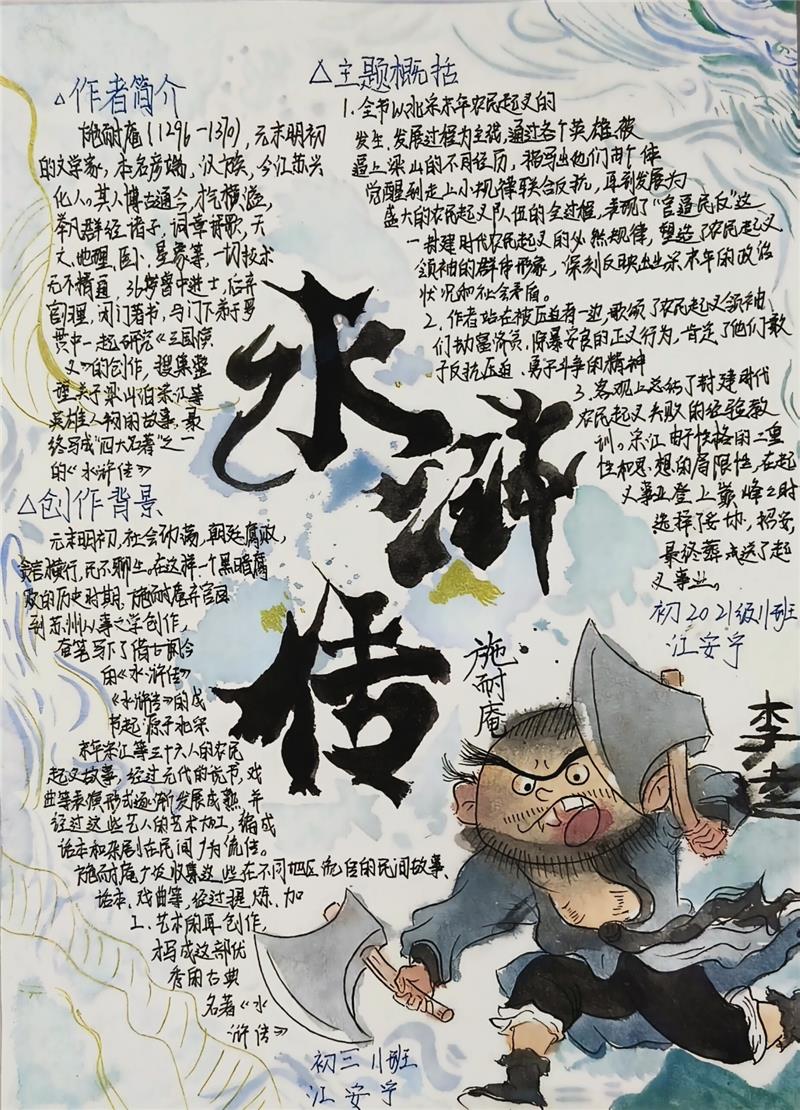 △作者简介
施耐庵(1296-1370),元末明初
的文学家,本名彦端,汉族,今江苏兴
化人。其人博古通今,才气横溢,
举凡群经诸子,词章诗歌,天
文、地理、医卜、星象等,一切技术
无不精通,36岁曾中进士,后弃
官归里,闭门著书,与门下弟子罗
贯中一起研究《三国演
义》的创作,搜集整
理关于梁山伯宋江等
英雄人物的故事,最
终写成“四大名著”之一
的《水浒传》
△创作背景
元末明初,社会动荡,朝廷腐败,
贪官横行,民不聊生。在这样一个黑暗腐
败的历史时期,施耐庵弃官回
到苏州从事文学创作,
奋笔写下了借古讽今
的《水浒传》
《水浒传》的成
书起源于北宋
末年宋江等三十六人的农民
起义故事,经过元代的说书,戏
曲等表演形式逐渐发展成熟,并
经过这些艺人的艺术加工,编成
话本和杂剧在民间广为流传。
施耐庵广泛收集这些在不同地区流传的民间故事、
话本、戏曲等,经过提炼、加
工、艺术的再创作,
才写成这部优
秀的古典
名著《水
浒传》
△主题概括
1.全书以北宋末年农民起义的
发生、发展过程为主线,通过各个英雄被
逼上梁山的不同经历,描写出他们由个体
觉醒到走上小规律联合反抗,再到发展为
盛大的农民起义队伍的全过程,表现了“官逼民反”这
一封建时代农民起义的必然规律,塑造了农民起义
领袖的群体形象,深刻反映出北宋末年的政治
状况和社会矛盾。
2.作者站在被压迫者一边,歌颂了农民起义领袖
们劫富济贫、除暴安良的正义行为,肯定了他们敢
于反抗压迫、勇于斗争的精神
3.客观上总结了封建时代
农民起义失败的经验教
训。宋江由于性格的二重
性和思想的局限性,在起
义事业登上巅峰之时
选择了妥协,招安,
最终葬送了起
义事业。
初2021级11班
江安宇
水浒传
施耐庵
李逵
初三11班
江安宇